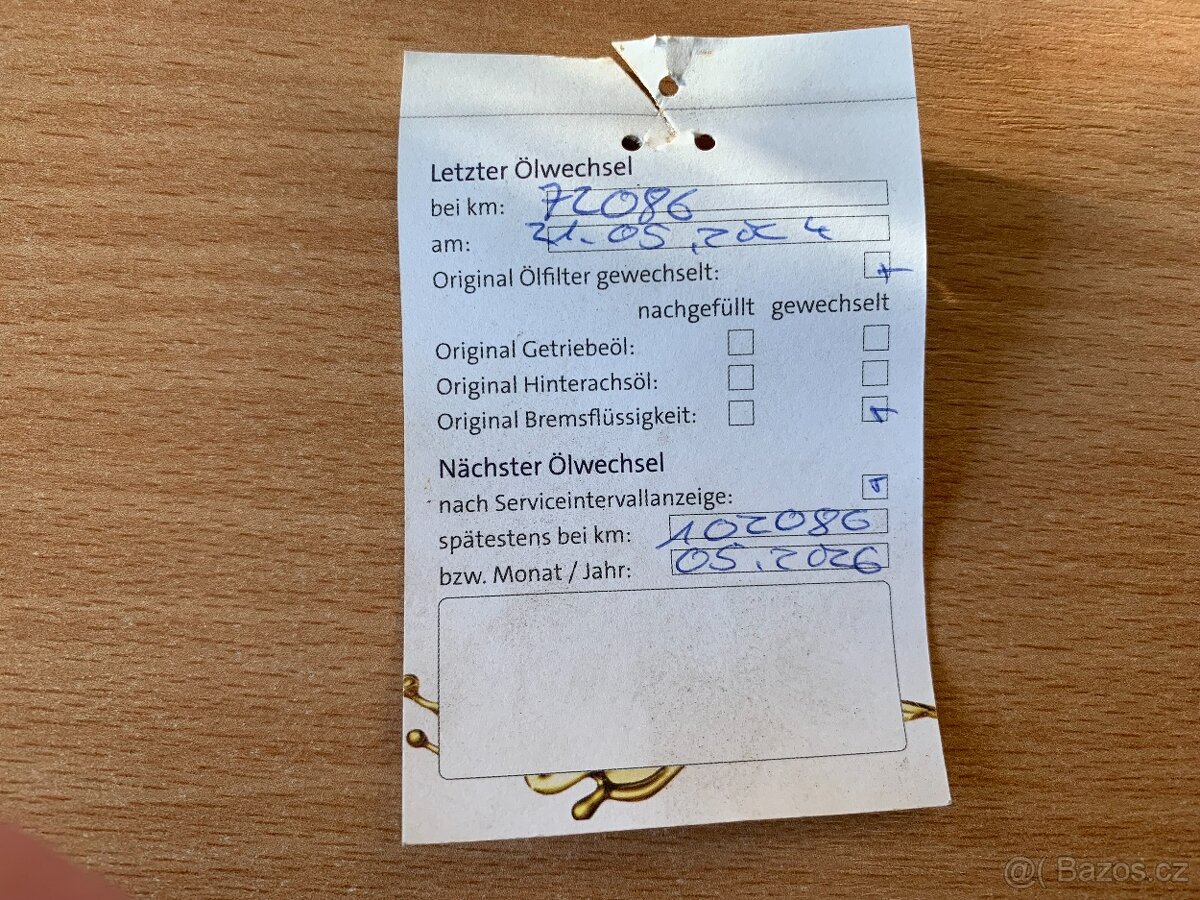 Letzter Ölwechsel
bei km: 72086
am: 21.05.2024
Original Ölfilter gewechselt:
nachgefüllt gewechselt
Original Getriebeöl:
Original Hinterachsöl:
Original Bremsflüssigkeit:
Nächster Ölwechsel
nach Serviceintervallanzeige:
spätestens bei km: 102086
bzw. Monat / Jahr: 05.2026
@( Bazos.cz